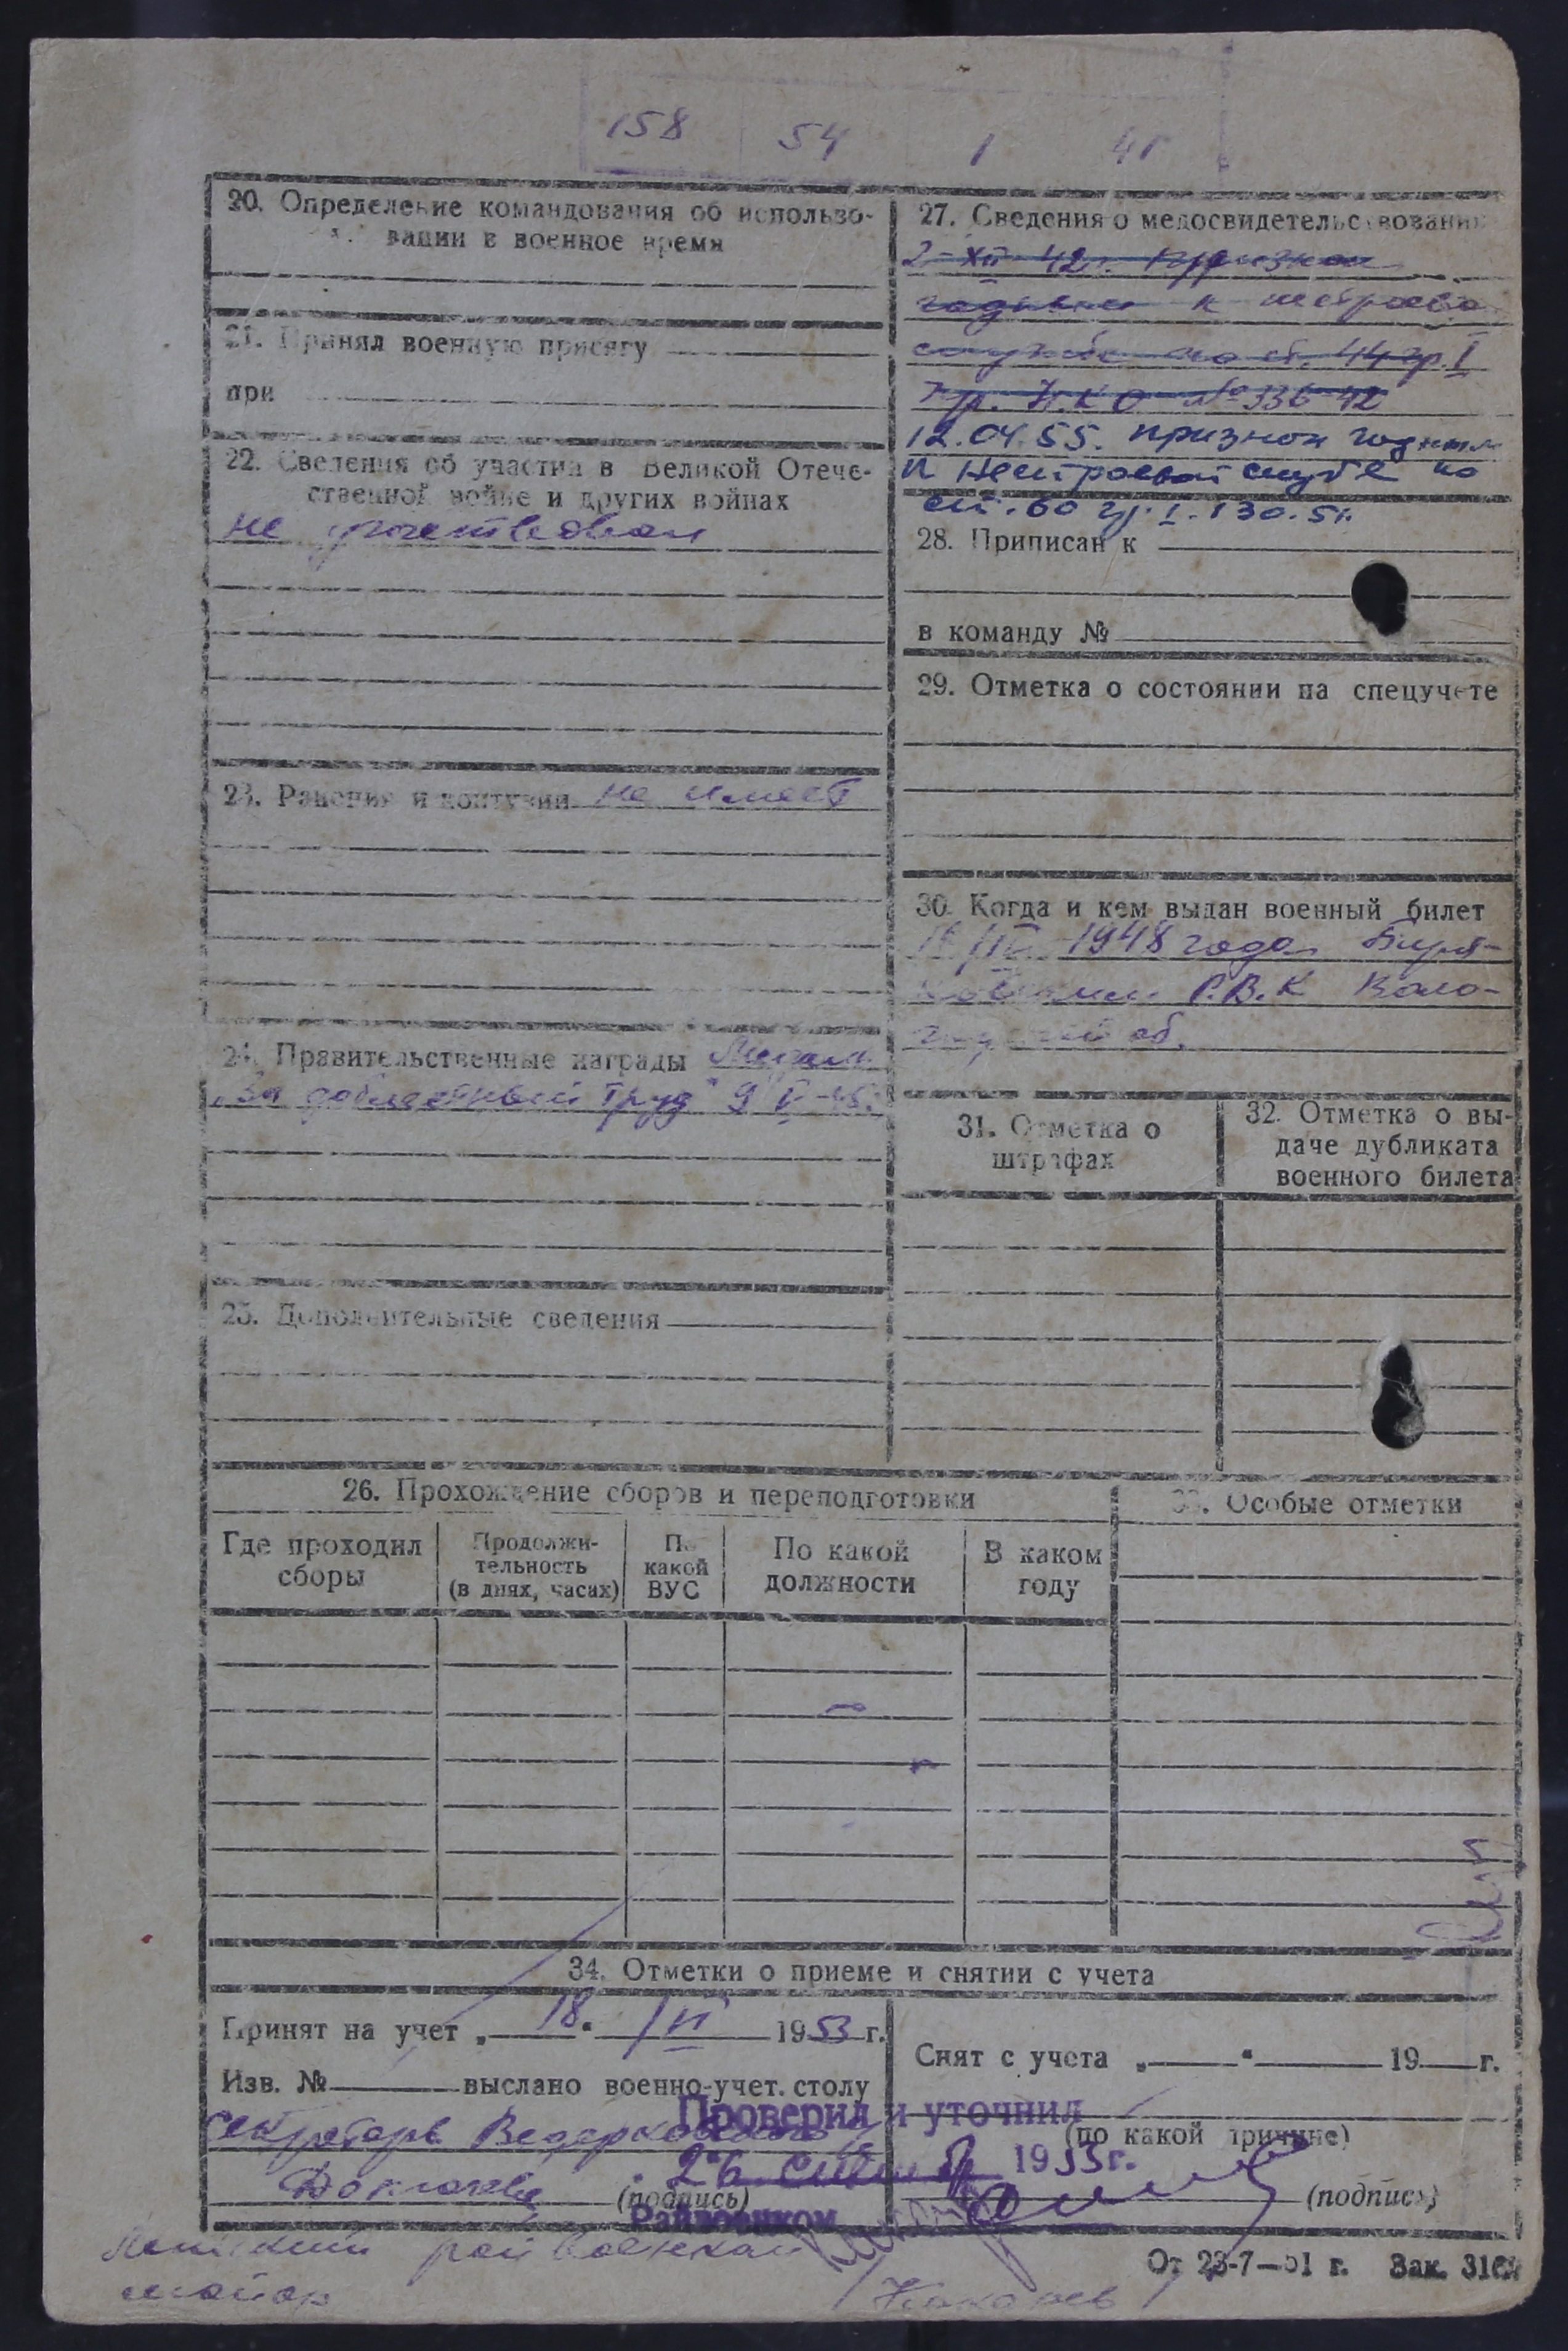 158 54 1 41
20. Определение командования об использо-
вании в военное время
21. Принял военную присягу
при
22. Сведения об участии в Великой Отече-
ственной войне и других войнах
не участвовал
23. Ранения и контузии не имеет
24. Правительственные награды Медаль
„За доблестный труд" 9 V-45.
25. Дополнительные сведения
27. Сведения о медосвидетельствовании
2-XII 42г. признан
годным к нестроево
службе по ст. 44 гр. I
Пр. Н.К.О №336-42
12.04.55. признан годным
к нестроевой службе по
ст. 60 гр. I. 130. 51.
28. Приписан к
в команду №
29. Отметка о состоянии на спецучете
30. Когда и кем выдан военный билет
1948 года Биря-
Р.В.К Воло-
об.
31. Отметка о
штрафах
32. Отметка о вы-
даче дубликата
военного билета
26. Прохождение сборов и переподготовки
Где проходил
сборы
Продолжи-
тельность
(в днях, часах)
По
какой
ВУС
По какой
должности
В каком
году
33. Особые отметки
34. Отметки о приеме и снятии с учета
Принят на учет „18" VI 1953 г.
Изв. № выслано военно-учет. столу
Секретарь
(подпись)
Снят с учета „ " 19 г.
(по какой причине)
(подпись)
Проверил и уточнил
26 1953г.
Райвоенком
райвоенком
майор
От 23-7-51 г. Зак. 316